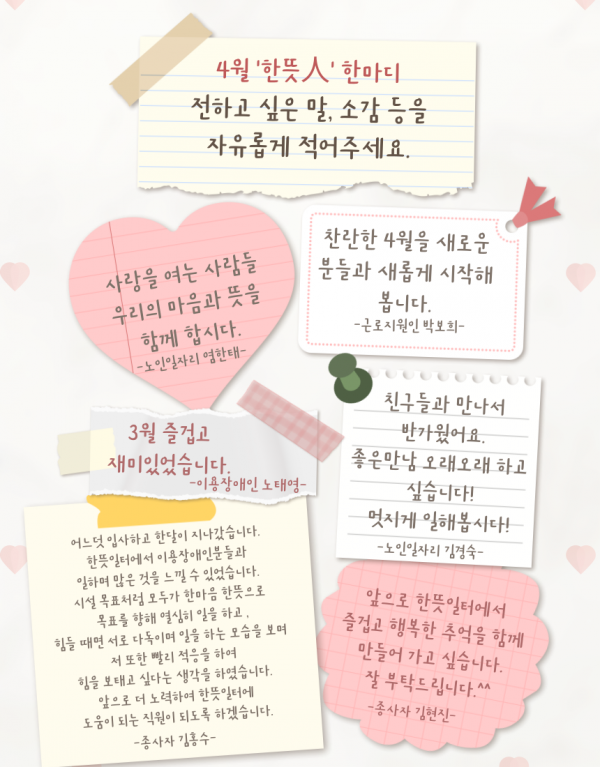 4월 '한뜻人' 한마디
전하고 싶은 말, 소감 등을
자유롭게 적어주세요.
사랑을 여는 사람들
우리의 마음과 뜻을
함께 합시다.
-노인일자리 염한태-
찬란한 4월을 새로운
분들과 새롭게 시작해
봅니다.
-근로지원인 박보희-
3월 즐겁고
재미있었습니다.
-이용장애인 노태영-
친구들과 만나서
반가웠어요.
좋은만남 오래오래 하고
싶습니다!
멋지게 일해봅시다!
-노인일자리 김경숙-
어느덧 입사하고 한달이 지나갔습니다.
한뜻일터에서 이용장애인분들과
일하며 많은 것을 느낄 수 있었습니다.
시설 목표처럼 모두가 한마음 한뜻으로
목표를 향해 열심히 일을 하고,
힘들 때면 서로 다독이며 일을 하는 모습을 보며
저 또한 빨리 적응을 하여
힘을 보태고 싶다는 생각을 하였습니다.
앞으로 더 노력하여 한뜻일터에
도움이 되는 직원이 되도록 하겠습니다.
-종사자 김홍수-
앞으로 한뜻일터에서
즐겁고 행복한 추억을 함께
만들어 가고 싶습니다.
잘 부탁드립니다.^^
-종사자 김현진-